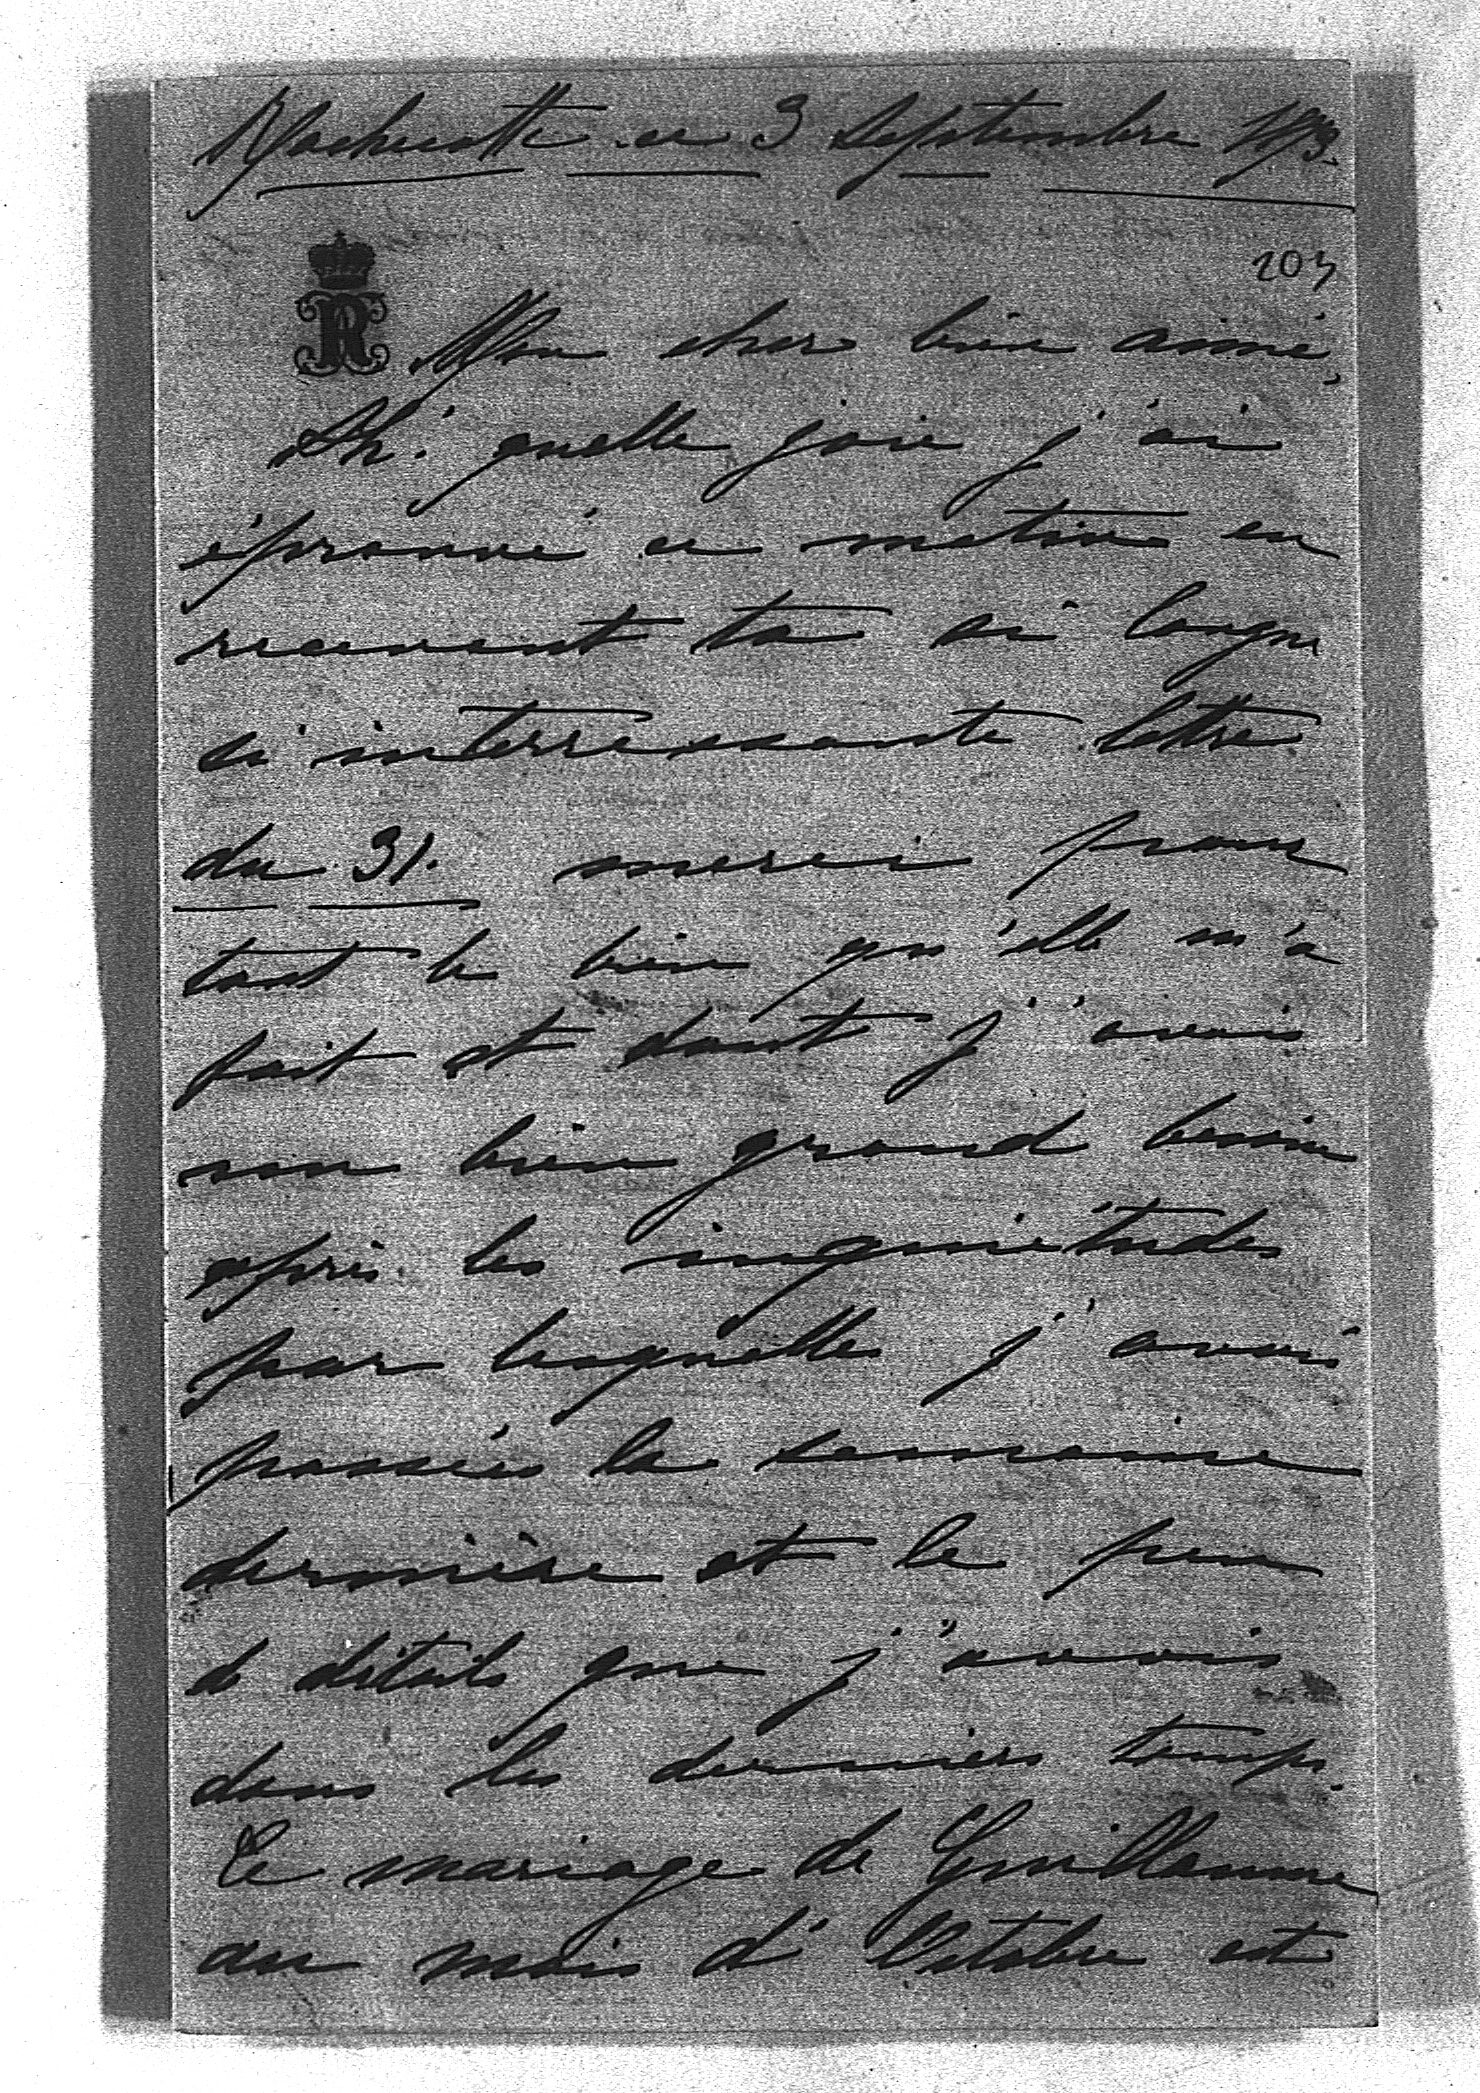 Rochecotte ce 3 Septembre 1873.
203
R Mon cher bien aimé,
Ah! quelle joie j'ai
éprouvé ce matin en
recevant ta si longue
si interressante lettre
du 31. merci pour
tout le bien qu'elle m'a
fait et dont j'avais
un bien grand besoin
après les inquiétudes
par lesquelles j'avais
passées la semaine
dernière et le peu
de détails que j'avais
dans les derniers temps.
Le mariage de Guillaume
au mois d'Octobre est